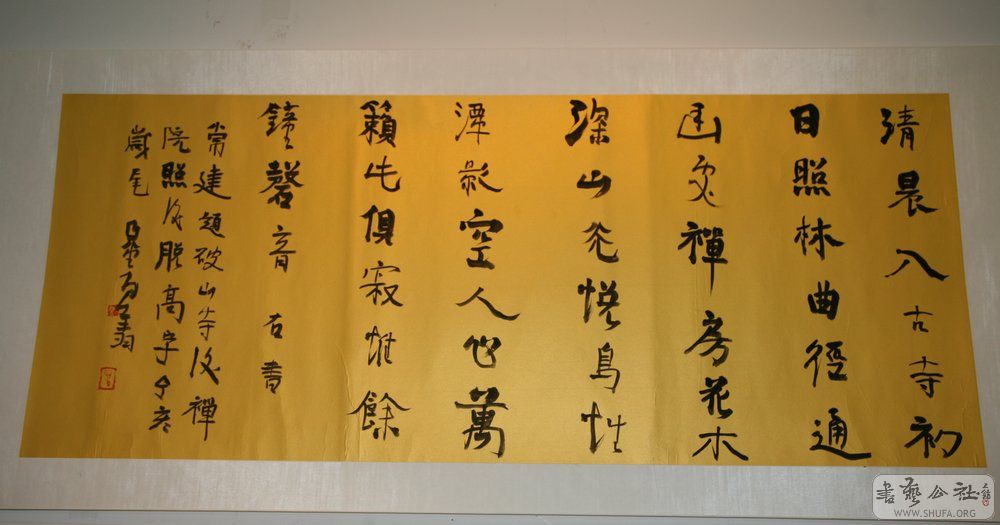 清晨入古寺初
日照林曲徑通
幽處禪房花木
深山光悅鳥性
潭影空人心萬
籟此俱寂惟餘
鐘磬音 右書
常建題破山寺後禪
院照後脫高字丁亥
歲尾
書藝公社
WWW.SHUFA.ORG